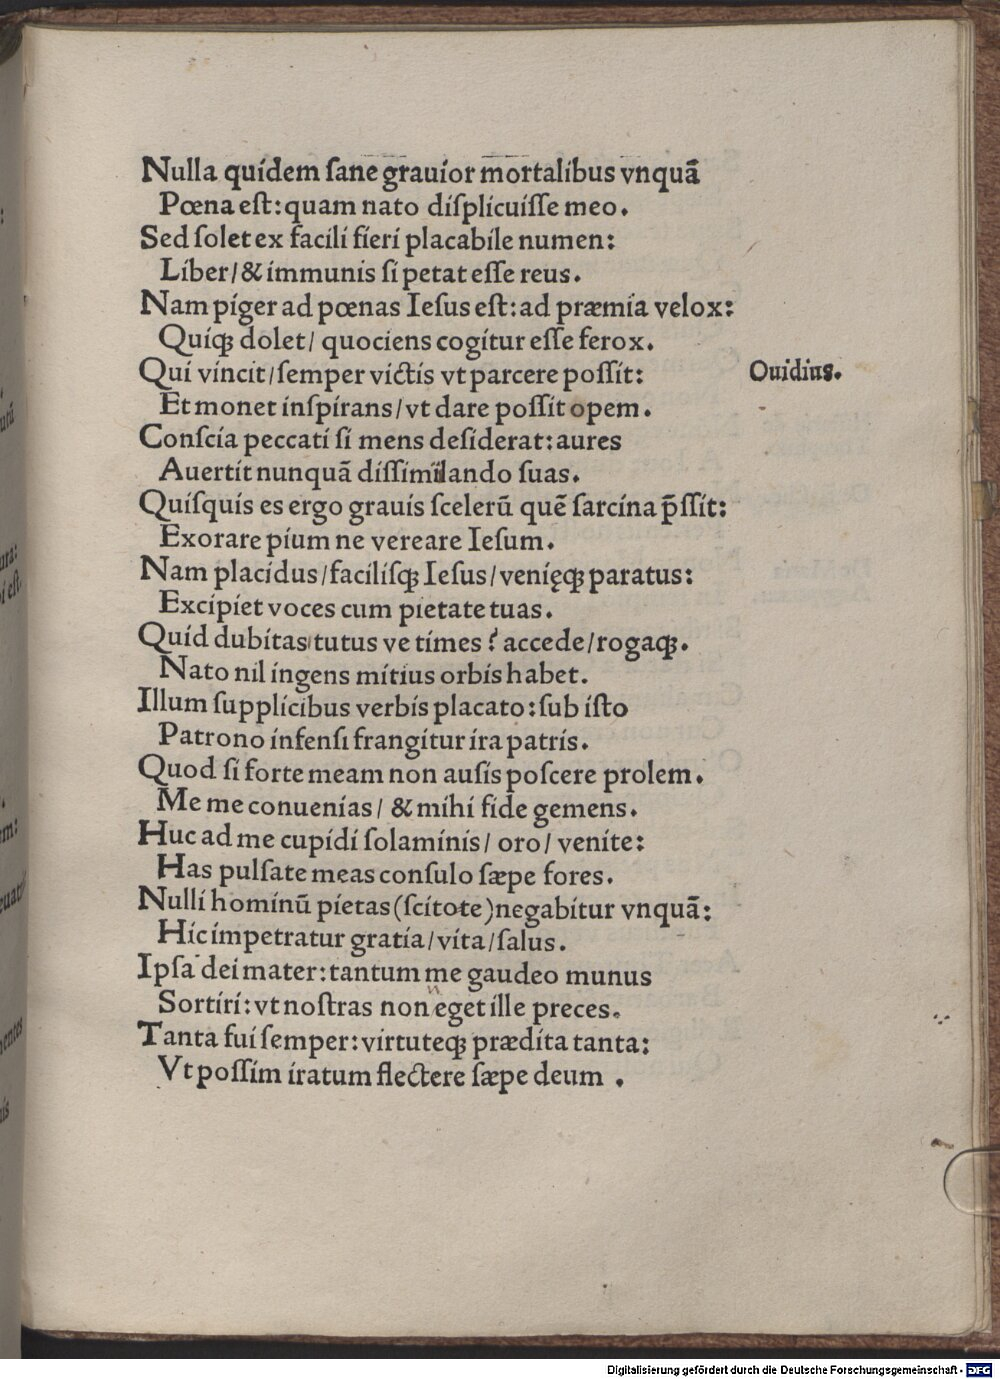 Nulla quidem ſane grauior mortalibus vnquā
Pœna eſt: quam nato diſplicuiſſe meo.
Sed ſolet ex facili fieri placabile numen:
Liber/ & immunis ſi petat eſſe reus.
Nam piger ad pœnas Ieſus eſt: ad præmia velox:
Quiqꝫ dolet/ quociens cogitur eſſe ferox.
Qui vincit/ ſemper victis vt parcere poſſit:
Ouidius.
Et monet inſpirans/ vt dare poſſit opem.
Conſcia peccati ſi mens deſiderat: aures
Auertit nunquā diſſimilando ſuas.
Quiſquis es ergo grauis ſcelerū quē ſarcina p̄ſſit:
Exorare pium ne vereare Ieſum.
Nam placidus/ faciliſqꝫ Ieſus/ venięqꝫ paratus:
Excipiet voces cum pietate tuas.
Quid dubitas tutus ve times? accede/ rogaqꝫ.
Nato nil ingens mitius orbis habet.
Illum ſupplicibus verbis placato: ſub iſto
Patrono infenſi frangitur ira patris.
Quod ſi forte meam non auſis poſcere prolem.
Me me conuenias/ & mihi fide gemens.
Huc ad me cupidi ſolaminis/ oro/ venite:
Has pulſate meas conſulo ſæpe fores.
Nulli hominū pietas (ſcitote) negabitur vnquā:
Hic impetratur gratia/ vita/ ſalus.
Ipſa dei mater: tantum me gaudeo munus
Sortiri: vt noſtras non eget ille preces.
Tanta fui ſemper: virtuteqꝫ prædita tanta:
Vt poſſim iratum flectere ſæpe deum.
Digitalisierung gefördert durch die Deutsche Forschungsgemeinschaft - DFG